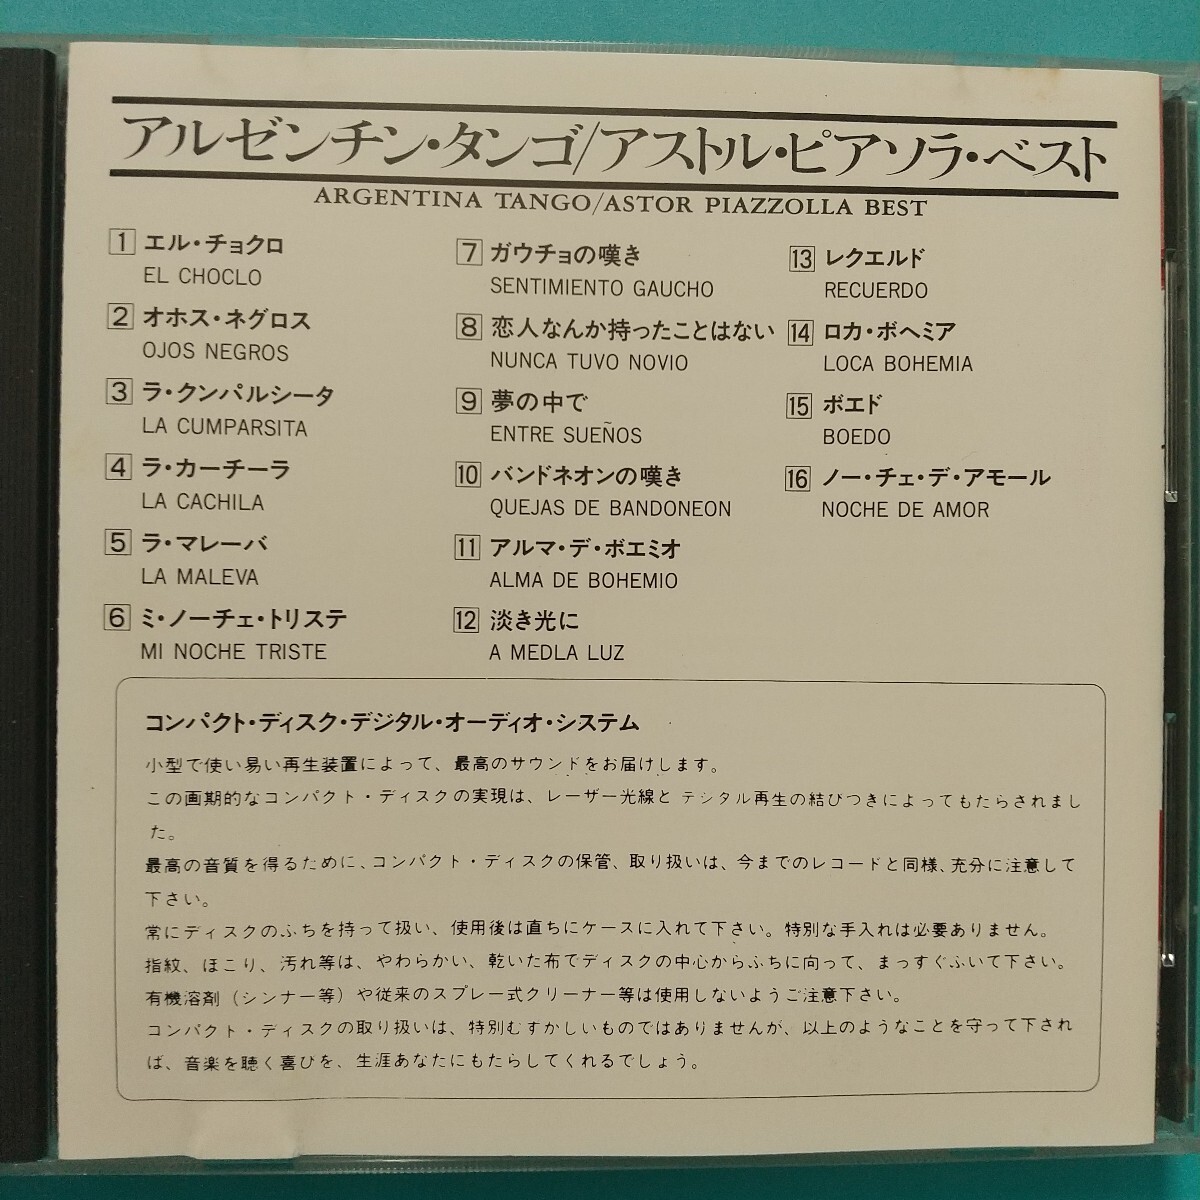 アルゼンチン・タンゴ/アストル・ピアソラ・ベスト
ARGENTINA TANGO/ASTOR PIAZZOLLA BEST
1 エル・チョクロ
EL CHOCLO
2 オホス・ネグロス
OJOS NEGROS
3 ラ・クンパルシータ
LA CUMPARSITA
4 ラ・カーチーラ
LA CACHILA
5 ラ・マレーバ
LA MALEVA
6 ミ・ノーチェ・トリステ
MI NOCHE TRISTE
7 ガウチョの嘆き
SENTIMIENTO GAUCHO
8 恋人なんか持ったことはない
NUNCA TUVO NOVIO
9 夢の中で
ENTRE SUEÑOS
10 バンドネオンの嘆き
QUEJAS DE BANDONEON
11 アルマ・デ・ボエミオ
ALMA DE BOHEMIO
12 淡き光に
A MEDLA LUZ
13 レクエルド
RECUERDO
14 ロカ・ボヘミア
LOCA BOHEMIA
15 ボエド
BOEDO
16 ノー・チェ・デ・アモール
NOCHE DE AMOR
コンパクト・ディスク・デジタル・オーディオ・システム
小型で使い易い再生装置によって、最高のサウンドをお届けします。
この画期的なコンパクト・ディスクの実現は、レーザー光線とデジタル再生の結びつきによってもたらされまし
た。
最高の音質を得るために、コンパクト・ディスクの保管、取り扱いは、今までのレコードと同様、充分に注意して
下さい。
常にディスクのふちを持って扱い、使用後は直ちにケースに入れて下さい。特別な手入れは必要ありません。
指紋、ほこり、汚れ等は、やわらかい、乾いた布でディスクの中心からふちに向って、まっすぐふいて下さい。
有機溶剤（シンナー等）や従来のスプレー式クリーナー等は使用しないようご注意下さい。
コンパクト・ディスクの取り扱いは、特別むずかしいものではありませんが、以上のようなことを守って下され
ば、音楽を聴く喜びを、生涯あなたにもたらしてくれるでしょう。